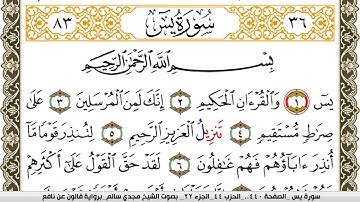 ٣٦ سُورَةُ يسٓ ٨٣
بِسْمِ اللَّهِ الرَّحْمَٰنِ الرَّحِيمِ
يسٓ ١ وَالْقُرْءَانِ الْحَكِيمِ ٢ إِنَّكَ لَمِنَ الْمُرْسَلِينَ ٣ عَلَىٰ
صِرَٰطٍ مُّسْتَقِيمٍ ٤ تَنزِيلُ الْعَزِيزِ الرَّحِيمِ ٥ لِتُنذِرَ قَوْمًا مَّا
أُنذِرَ ءَابَآؤُهُمْ فَهُمْ غَٰفِلُونَ ٦ لَقَدْ حَقَّ الْقَوْلُ عَلَىٰٓ أَكْثَرِهِمْ
سورة يس _ الصفحة ٤٤٠ .. الحزب ٤٤ _الجزء ٢٢ _ بصوت الشيخ مجدي سالم_ برواية قالون عن نافع